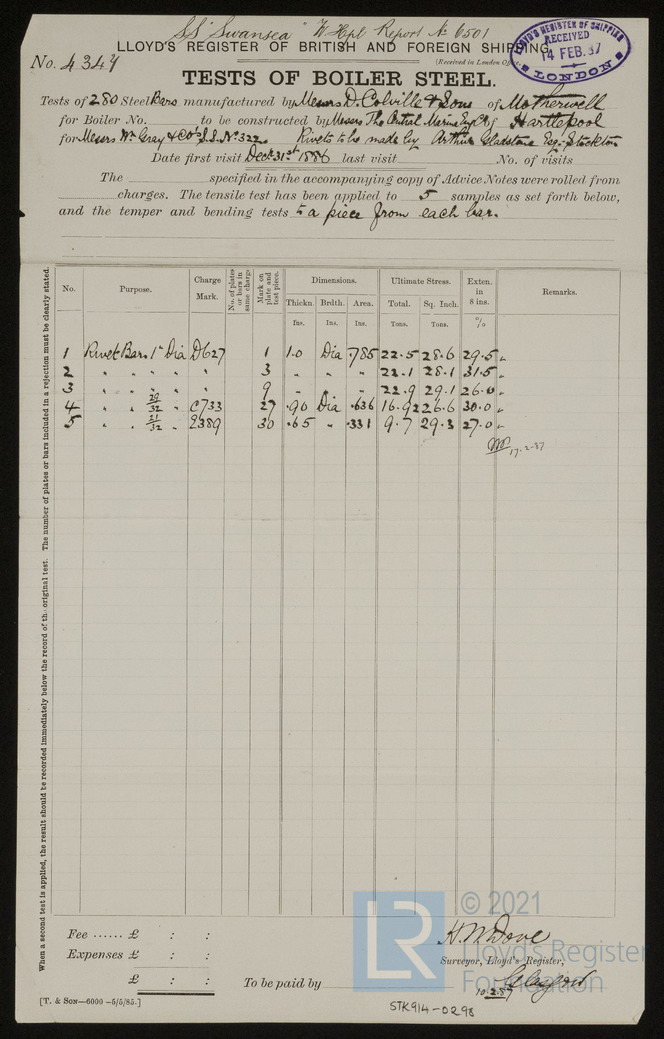 SS "Swansea" W Hpl Report No 6501
LLOYD'S REGISTER OF BRITISH AND FOREIGN SHIPPING.
No. 4347
(Received in London Office
LLOYD'S REGISTER OF SHIPPING
RECEIVED
14 FEB. 87
LONDON
TESTS OF BOILER STEEL.
Tests of 280 Steel Bars manufactured by Messrs D. Colville & Sons of Motherwell
for Boiler No. to be constructed by Messrs The Central Marine Engr Co of Hartlepool
for Messrs Wm Gray & Co's S.S. No 322. Rivets to be made by Arthur Gladstone Esq. Stockton
Date first visit Decr 31st 1886 last visit No. of visits
The specified in the accompanying copy of Advice Notes were rolled from
charges. The tensile test has been applied to 5 samples as set forth below,
and the temper and bending tests to a piece from each bar.
No. Purpose. Charge Mark. No. of plates or bars in same charge Mark on plate and test piece. Dimensions. Ultimate Stress. Exten. in 8 ins. Remarks.
Thickn. Brdth. Area. Total. Sq. Inch.
Ins. Ins. Ins. Tons. Tons. %
1 Rivet Bar. 1" Dia D627 1 1.0 Dia .785 22.5 28.6 29.5 "
2 " " " " " 3 " " " 22.1 28.1 31.5 "
3 " " " " " 9 " " " 22.9 29.1 26.0 "
4 " " 29/32 " C733 27 .90 Dia .636 16.92 26.6 30.0 "
5 " " 21/32 " 2389 30 .65 " .331 9.7 29.3 27.0 "
17.2.87
When a second test is applied, the result should be recorded immediately below the record of the original test. The number of plates or bars included in a rejection must be clearly stated.
Fee ...... £ : :
Expenses £ : :
£ : :
To be paid by
H. W. Dove
Surveyor, Lloyd's Register,
Glasgow
10.2.87
[T. & SON—6000 —5/5/85.]
STK914-0298
LR
© 2021
Lloyd's Register
Foundation